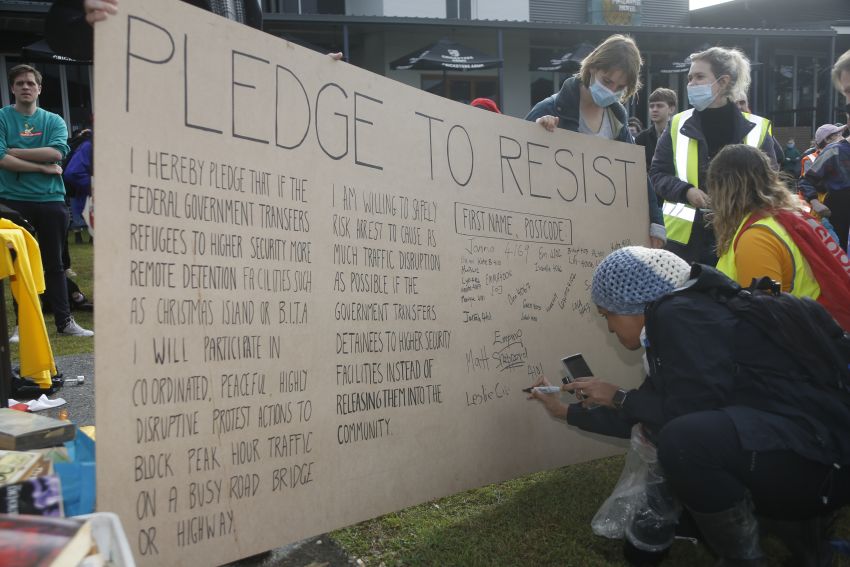 PLEDGE TO RESIST
I HEREBY PLEDGE THAT IF THE
FEDERAL GOVERNMENT TRANSFERS
REFUGEES TO HIGHER SECURITY MORE
REMOTE DETENTION FACILITIES SUCH
AS CHRISTMAS ISLAND OR B.I.T.A
I WILL PARTICIPATE IN
COORDINATED, PEACEFUL, HIGHLY
DISRUPTIVE PROTEST ACTIONS TO
BLOCK PEAK HOUR TRAFFIC
ON A BUSY ROAD BRIDGE
OR HIGHWAY.
I AM WILLING TO SAFELY
RISK ARREST TO CAUSE AS
MUCH TRAFFIC DISRUPTION
AS POSSIBLE IF THE
GOVERNMENT TRANSFERS
DETAINEES TO HIGHER SECURITY
FACILITIES INSTEAD OF
RELEASING THEM INTO THE
COMMUNITY.
FIRST NAME, POSTCODE
4169
Matt
Leslie